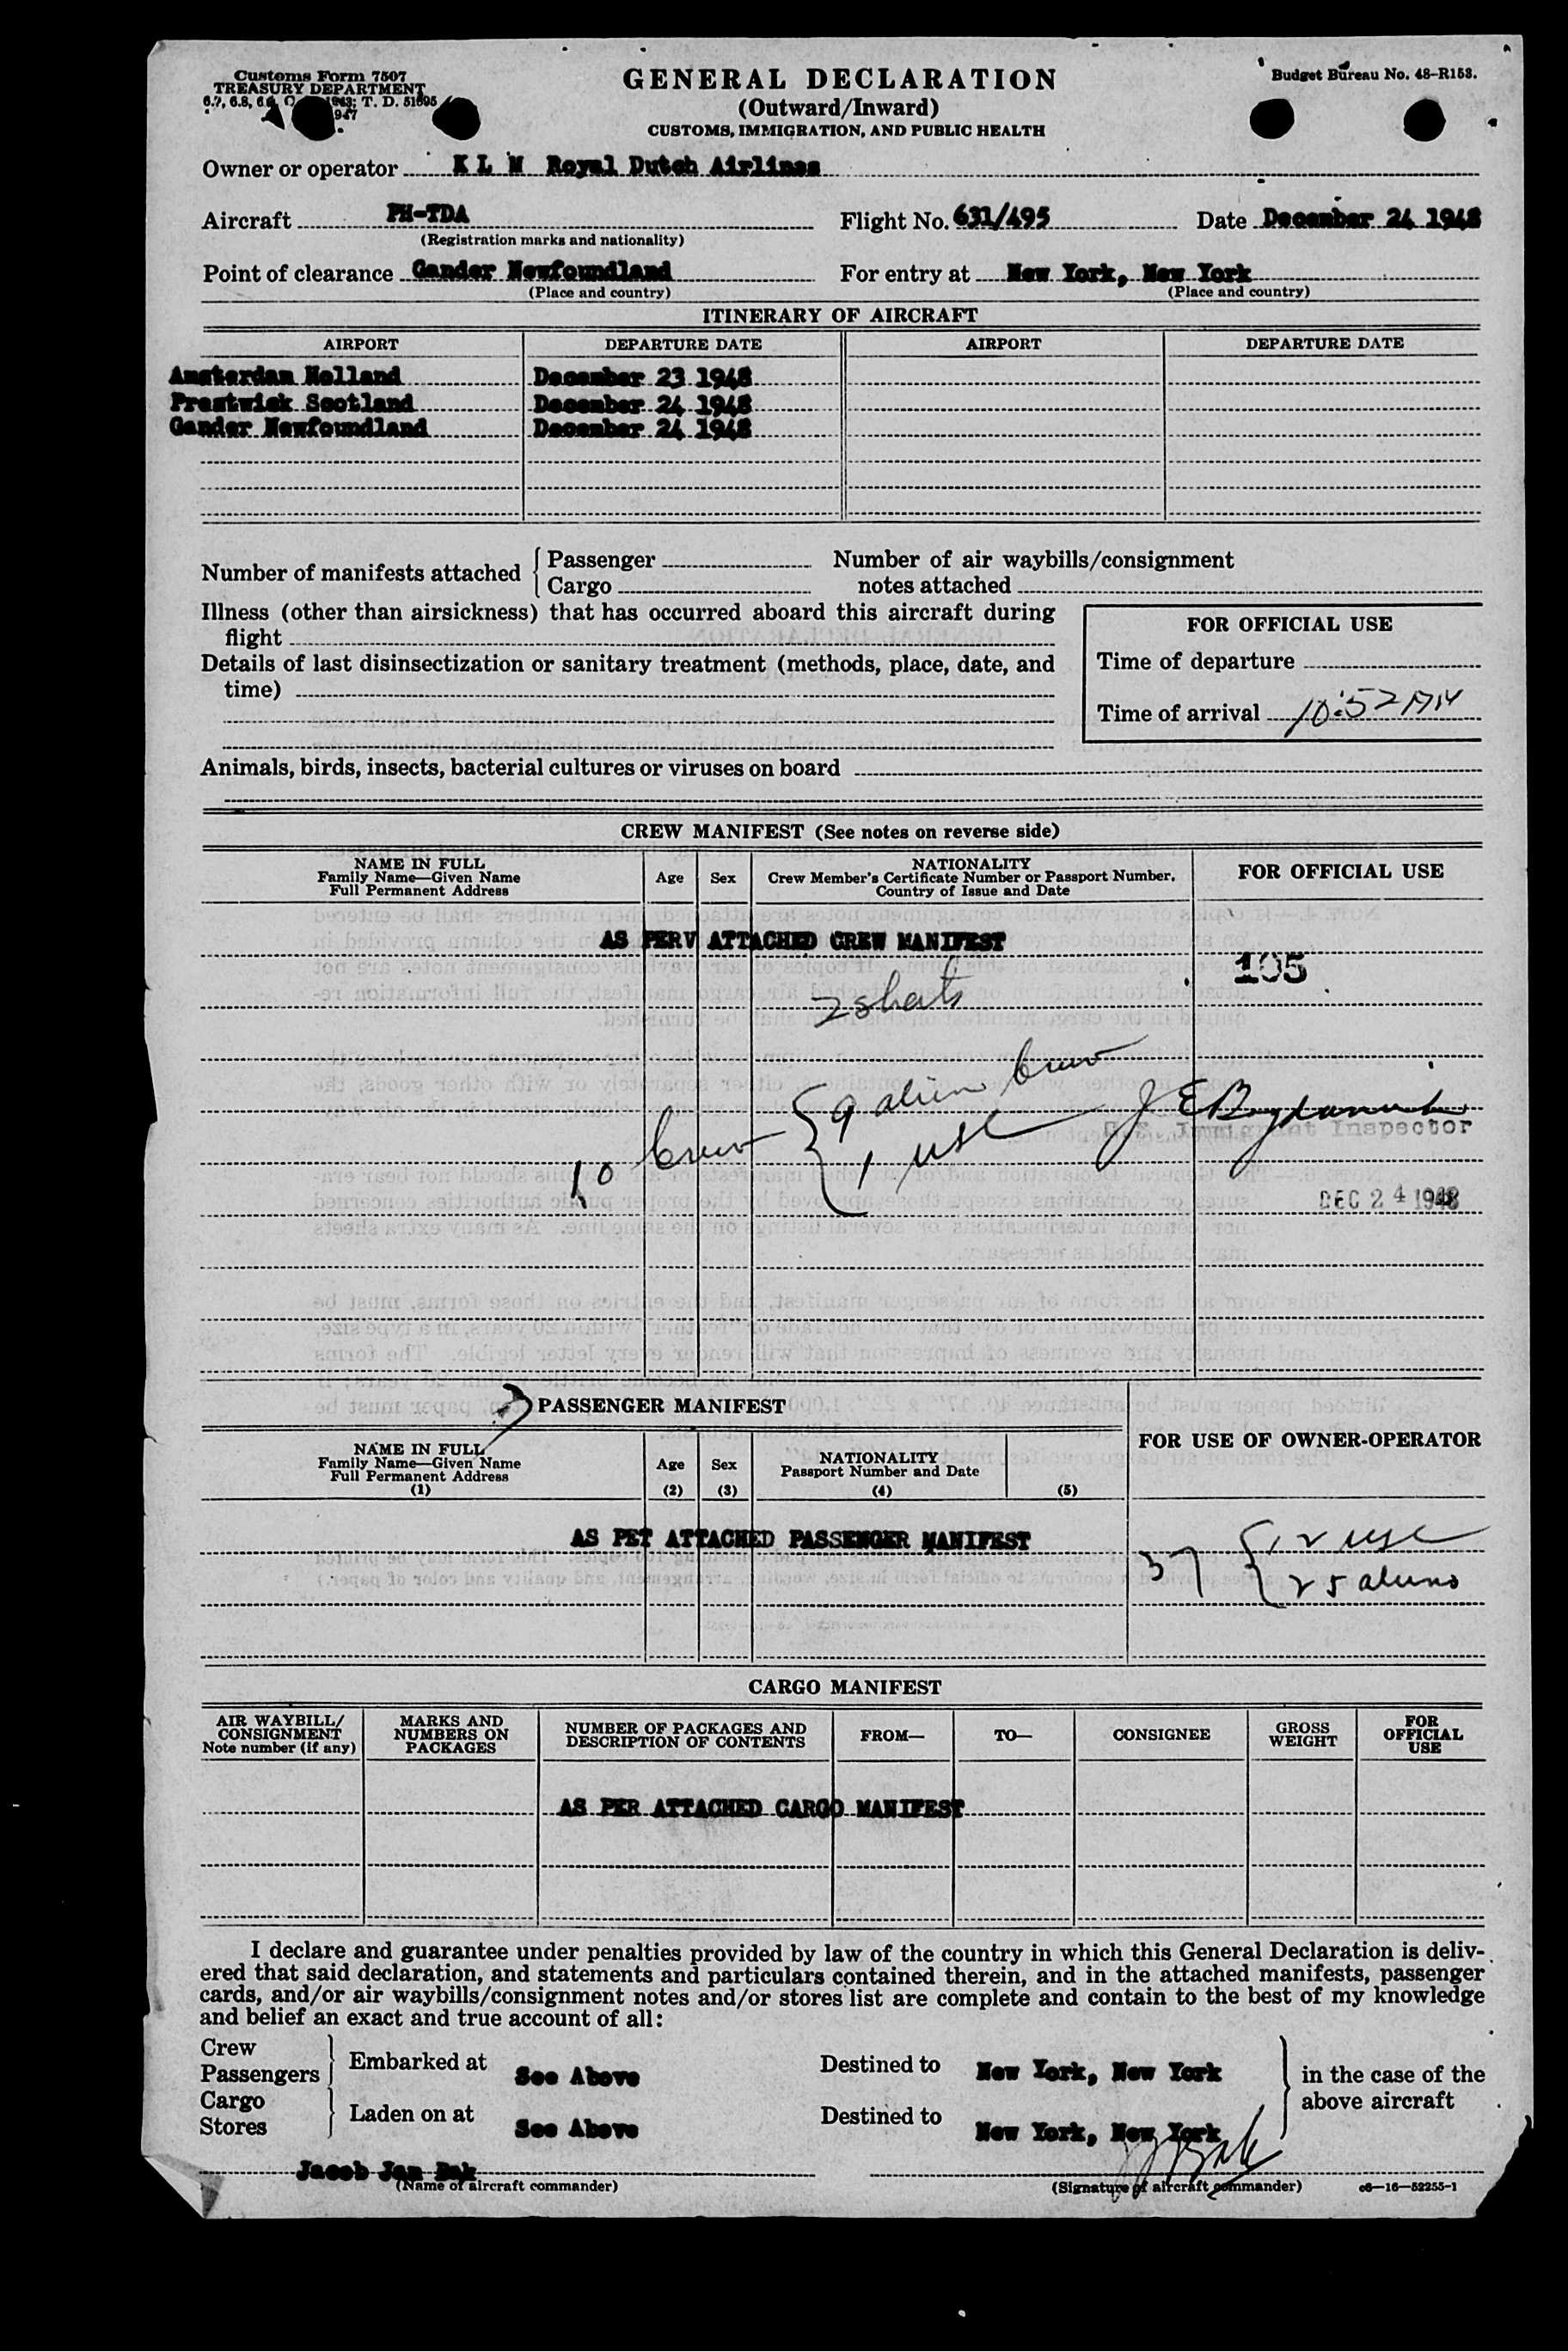 Customs Form 7507
TREASURY DEPARTMENT
GENERAL DECLARATION
(Outward/Inward)
CUSTOMS, IMMIGRATION, AND PUBLIC HEALTH
Budget Bureau No. 48-R153.
Owner or operator K L M Royal Dutch Airlines
Aircraft PH-TDA Flight No. 631/495 Date December 24 1948
(Registration marks and nationality)
Point of clearance Gander Newfoundland For entry at New York, New York
(Place and country) (Place and country)
ITINERARY OF AIRCRAFT
AIRPORT DEPARTURE DATE AIRPORT DEPARTURE DATE
Amsterdam Holland December 23 1948
Prestwick Scotland December 24 1948
Gander Newfoundland December 24 1948
Number of manifests attached { Passenger Number of air waybills/consignment
Cargo notes attached
Illness (other than airsickness) that has occurred aboard this aircraft during
flight
Details of last disinsectization or sanitary treatment (methods, place, date, and
time)
FOR OFFICIAL USE
Time of departure
Time of arrival 10:52 AM
Animals, birds, insects, bacterial cultures or viruses on board
CREW MANIFEST (See notes on reverse side)
NAME IN FULL
Family Name—Given Name
Full Permanent Address
Age
Sex
NATIONALITY
Crew Member's Certificate Number or Passport Number,
Country of Issue and Date
FOR OFFICIAL USE
AS PERV ATTACHED CREW MANIFEST
105
2 sheets
10 Crew { 9 alien Crew
1 USC
Immigrant Inspector
DEC 24 1948
3 PASSENGER MANIFEST
NAME IN FULL
Family Name—Given Name
Full Permanent Address
(1)
Age
(2)
Sex
(3)
NATIONALITY
Passport Number and Date
(4)
(5)
FOR USE OF OWNER-OPERATOR
AS PET ATTACHED PASSENGER MANIFEST
37 { 12 USC
25 aliens
CARGO MANIFEST
AIR WAYBILL/
CONSIGNMENT
Note number (if any)
MARKS AND
NUMBERS ON
PACKAGES
NUMBER OF PACKAGES AND
DESCRIPTION OF CONTENTS
FROM—
TO—
CONSIGNEE
GROSS
WEIGHT
FOR
OFFICIAL
USE
AS PER ATTACHED CARGO MANIFEST
I declare and guarantee under penalties provided by law of the country in which this General Declaration is deliv-
ered that said declaration, and statements and particulars contained therein, and in the attached manifests, passenger
cards, and/or air waybills/consignment notes and/or stores list are complete and contain to the best of my knowledge
and belief an exact and true account of all:
Crew
Passengers } Embarked at See Above Destined to New York, New York } in the case of the
above aircraft
Cargo
Stores } Laden on at See Above Destined to New York, New York
Jacob Jan Bak JJBak
(Name of aircraft commander) (Signature of aircraft commander) c6—16—52255-1